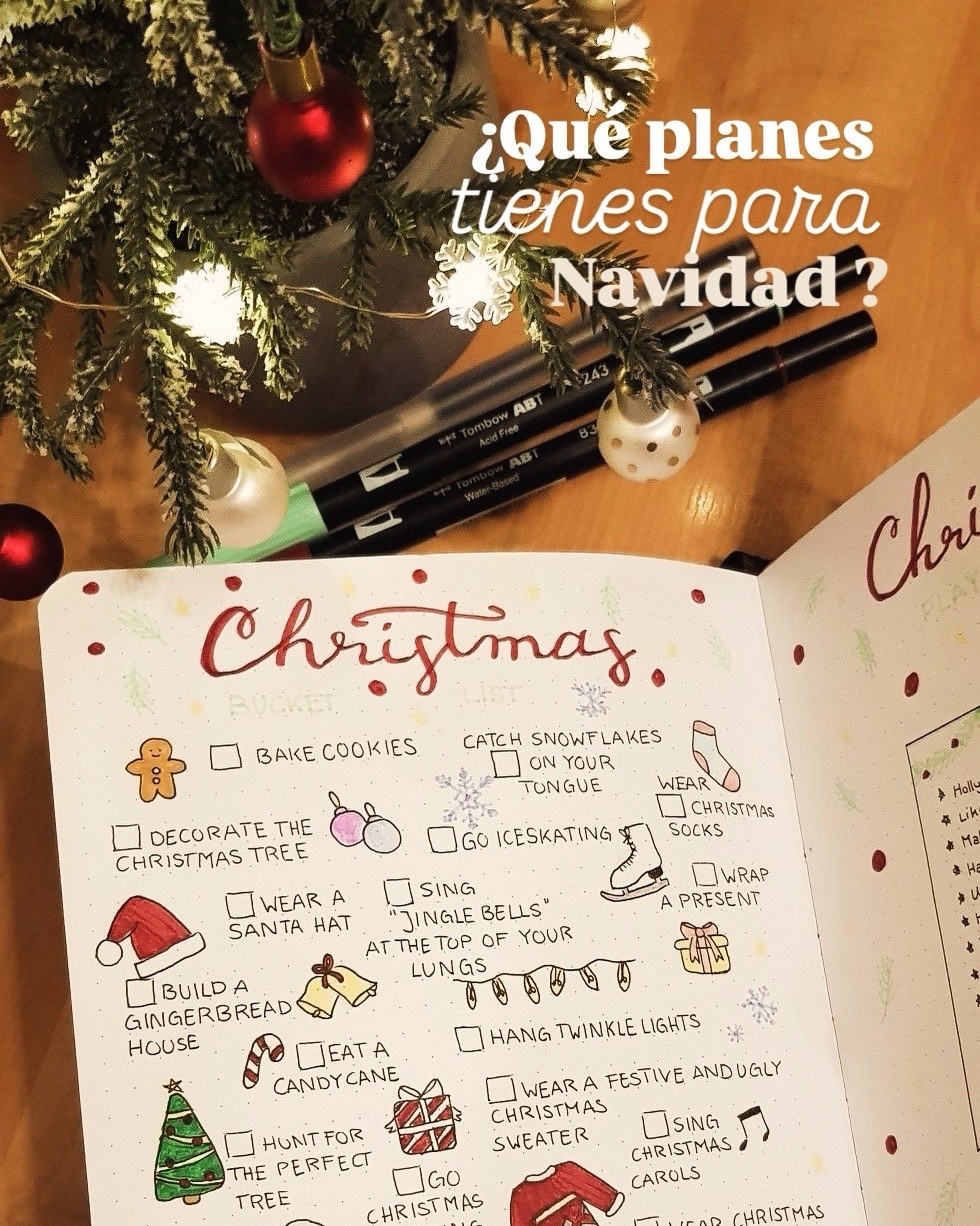 ¿Qué planes
tienes para
Navidad ?
243
Tombow ABT
Acid Free
83
Tombow ABT
Water-Based
Christmas
BUCKET LIST
BAKE COOKIES
CATCH SNOWFLAKES
ON YOUR
TONGUE
WEAR
CHRISTMAS
SOCKS
DECORATE THE
CHRISTMAS TREE
GO ICESKATING
WRAP
A PRESENT
WEAR A
SANTA HAT
SING
"JINGLE BELLS"
AT THE TOP OF YOUR
LUNGS
BUILD A
GINGERBREAD
HOUSE
HANG TWINKLE LIGHTS
EAT A
CANDYCANE
WEAR A FESTIVE AND UGLY
CHRISTMAS
SWEATER
SING
CHRISTMAS
CAROLS
HUNT FOR
THE PERFECT
TREE
GO
CHRISTMAS
WEAR CHRISTMAS
Chri
PLA
Holly
Lik
Ma
Ha